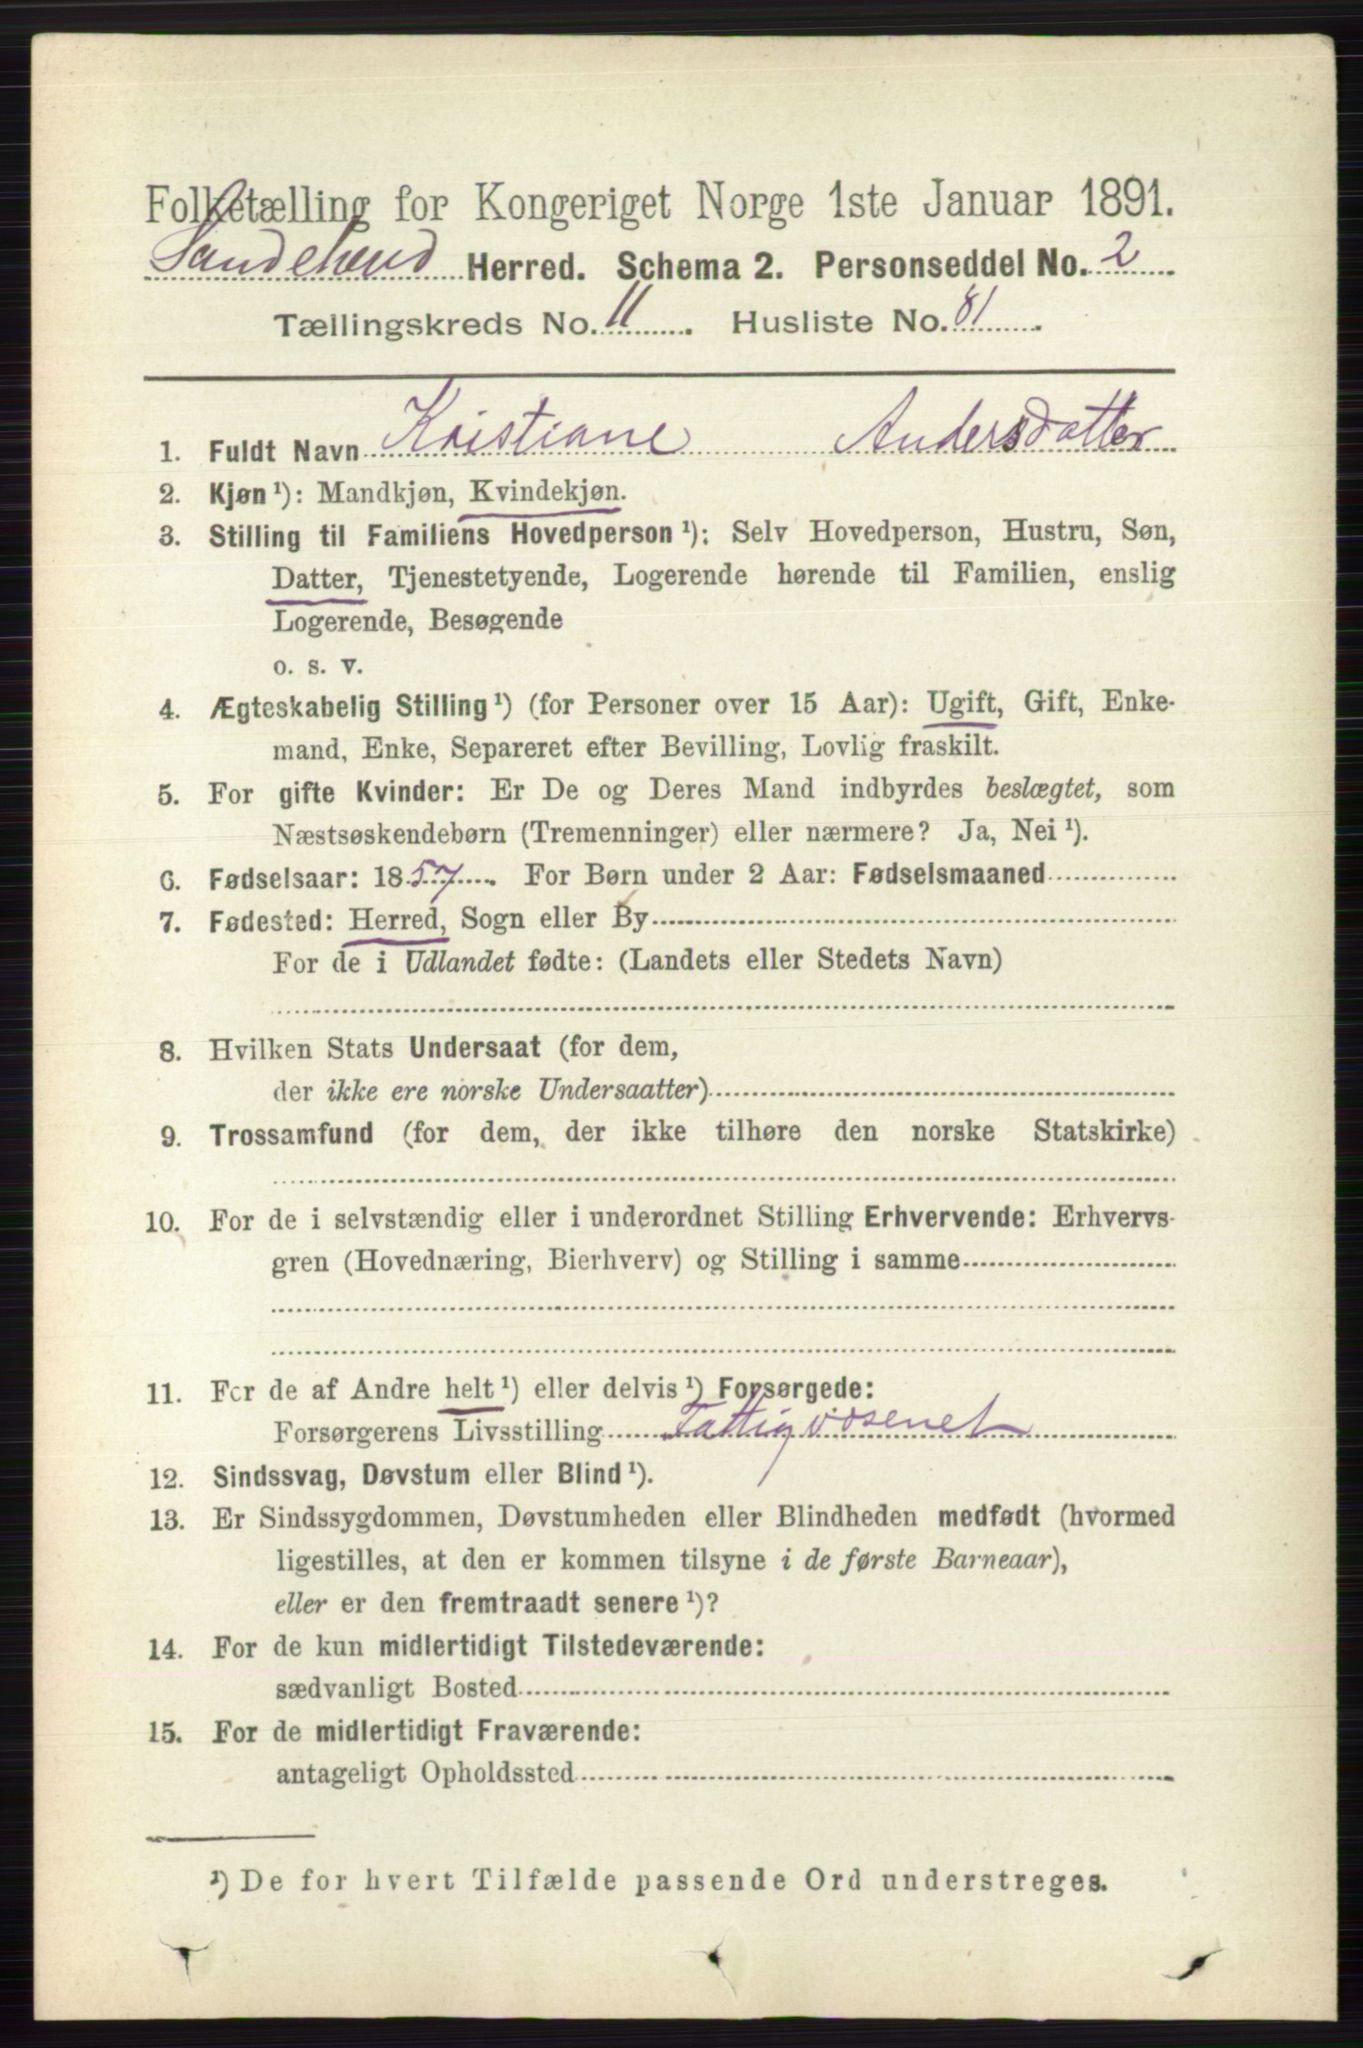 Folketælling for Kongeriget Norge 1ste Januar 1891.
Sandeherred Herred. Schema 2. Personseddel No. 2
Tællingskreds No. 11. Husliste No. 81.
1. Fuldt Navn Kristiane Andersdatter
2. Kjøn ¹): Mandkjøn, Kvindekjøn.
3. Stilling til Familiens Hovedperson ¹): Selv Hovedperson, Hustru, Søn,
Datter, Tjenestetyende, Logerende hørende til Familien, enslig
Logerende, Besøgende
o. s. v.
4. Ægteskabelig Stilling ¹) (for Personer over 15 Aar): Ugift, Gift, Enke-
mand, Enke, Separeret efter Bevilling, Lovlig fraskilt.
5. For gifte Kvinder: Er De og Deres Mand indbyrdes beslægtet, som
Næstsøskendebørn (Tremenninger) eller nærmere? Ja, Nei ¹).
6. Fødselsaar: 1857. For Børn under 2 Aar: Fødselsmaaned
7. Fødested: Herred, Sogn eller By
For de i Udlandet fødte: (Landets eller Stedets Navn)
8. Hvilken Stats Undersaat (for dem,
der ikke ere norske Undersaatter)
9. Trossamfund (for dem, der ikke tilhøre den norske Statskirke)
10. For de i selvstændig eller i underordnet Stilling Erhvervende: Erhvervs-
gren (Hovednæring, Bierhverv) og Stilling i samme
11. For de af Andre helt ¹) eller delvis ¹) Forsørgede:
Forsørgerens Livsstilling Fattigvæsenet
12. Sindssvag, Døvstum eller Blind ¹).
13. Er Sindssygdommen, Døvstumheden eller Blindheden medfødt (hvormed
ligestilles, at den er kommen tilsyne i de første Barneaar),
eller er den fremtraadt senere ¹)?
14. For de kun midlertidigt Tilstedeværende:
sædvanligt Bosted
15. For de midlertidigt Fraværende:
antageligt Opholdssted
¹) De for hvert Tilfælde passende Ord understreges.